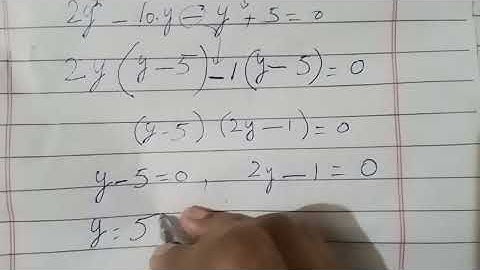 2y² - 10y - y + 5 = 0
2y(y-5) -1(y-5) = 0
(y-5) (2y-1) = 0
y-5=0, 2y-1=0
y=5